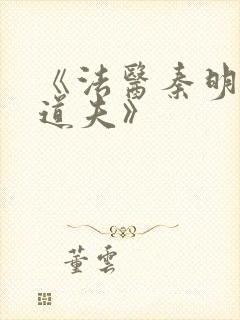 《法醫秦明
道夫》
董雲